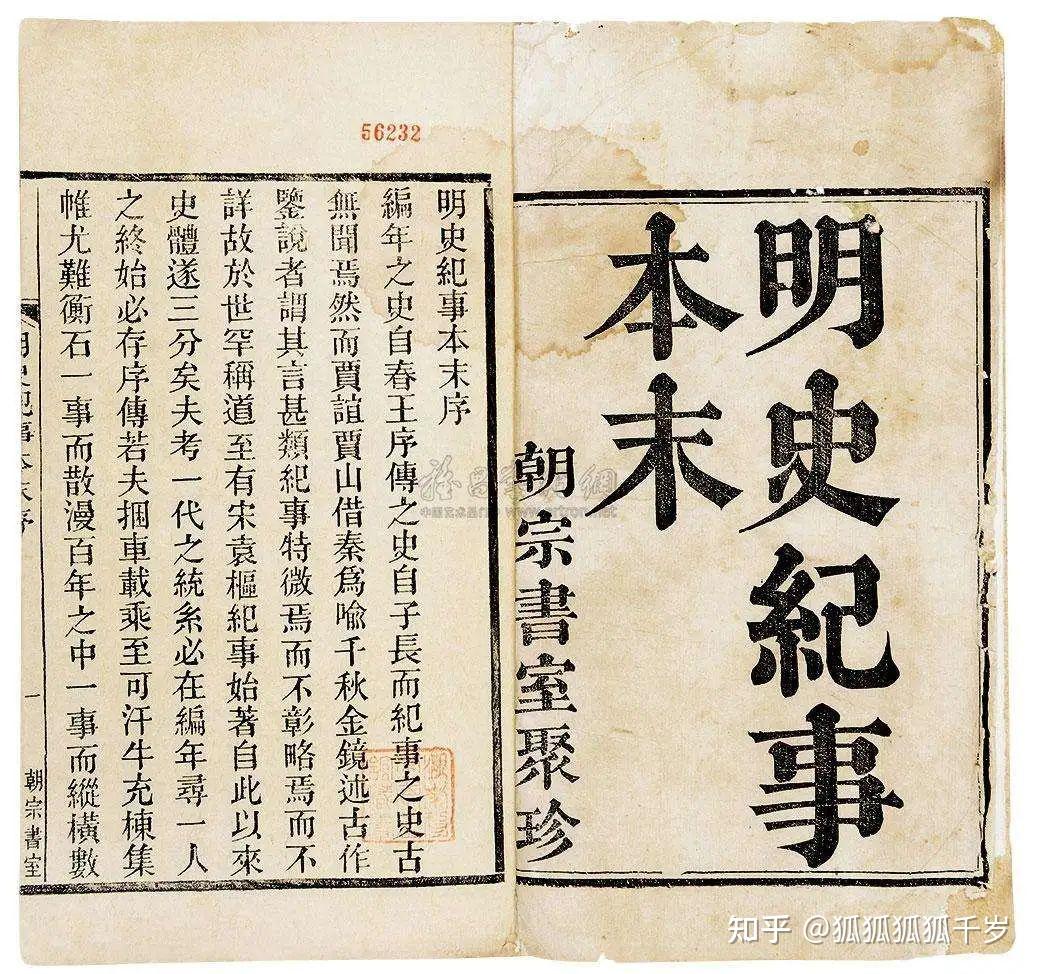 明史紀事
本末
朝宗書室聚珍
56232
明史紀事本末序
編年之史自春王序傳之史自子長而紀事之史古
無聞焉然而賈誼賈山借秦爲喻千秋金鏡述古作
鑒說者謂其言甚類紀事特微焉而不彰略焉而不
詳故於世罕稱道至有宋袁樞紀事始著自此以來
史體遂三分矣夫考一代之統系必在編年尋一人
之終始必存序傳若夫捆車載乘至可汗牛充棟集
帷尤難衡石一事而散漫百年之中一事而縱橫數
明史紀事本末序
一
朝宗書室
www.artron.net
知乎 @狐狐狐狐千岁